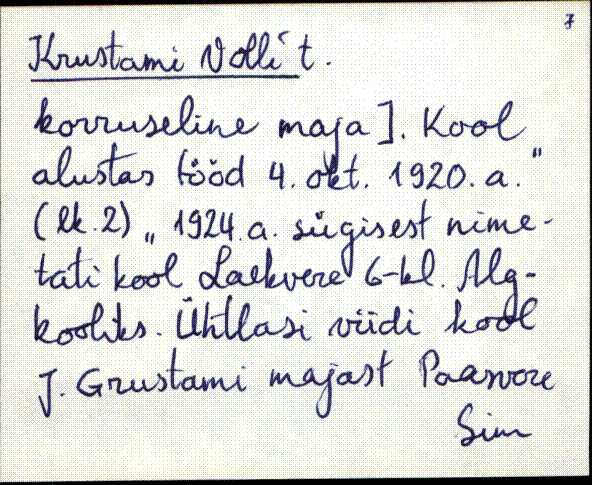 7
Krustami Volli´t.
korruseline maja]. Kool
alustas tööd 4. okt. 1920. a."
(lk. 2) „1924. a. sügisest nime-
tati kool Laekvere 6-kl. Alg-
kooliks. Ühtlasi viidi kool
J. Grustami majast Paasvere
Sim